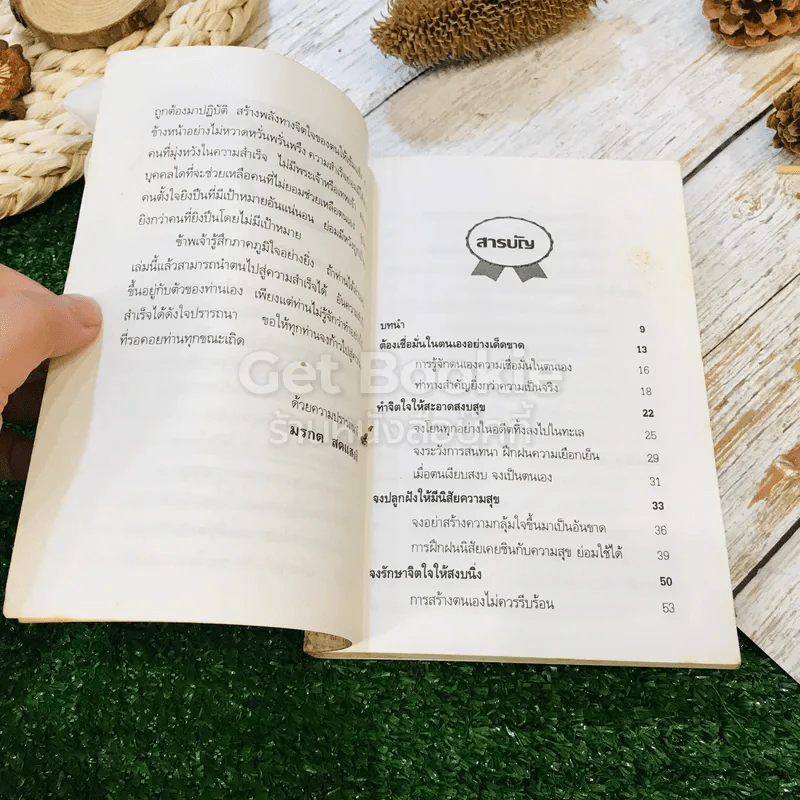 ถูกต้องมาปฏิบัติ สร้างพลังทางจิตใจของตนให้
ข้างหน้าอย่างไม่หวาดหวั่นพรั่นพรึง ความสำเร็จ
คนที่มุ่งหวังในความสำเร็จ ไม่มีพระเจ้าหรือเทพเจ้า
บุคคลใดที่จะช่วยเหลือคนที่ไม่ยอมช่วยเหลือตนเอง
คนตั้งใจยิงปืนที่มีเป้าหมายอันแน่นอน ย่อมมี
ยิงกว่าคนที่ยิงปืนโดยไม่มีเป้าหมาย
ข้าพเจ้ารู้สึกภาคภูมิใจอย่างยิ่ง ถ้าท่านได้
เล่มนี้แล้วสามารถนำตนไปสู่ความสำเร็จได้ อัน
ขึ้นอยู่กับตัวของท่านเอง เพียงแต่ท่านไม่รู้จัก
สำเร็จได้ดังใจปรารถนา ขอให้ทุกท่านจงก้าวไปสู่
ที่รอคอยท่านทุกขณะเถิด
ด้วยความปรารถนา
มรกต
สารบัญ
บทนำ 9
ต้องเชื่อมั่นในตนเองอย่างเด็ดขาด 13
การรู้จักตนเองความเชื่อมั่นในตนเอง 16
ท่าทางสำคัญยิ่งกว่าความเป็นจริง 18
ทำจิตใจให้สะอาดสงบสุข 22
จงโยนทุกอย่างในอดีตทิ้งลงไปในทะเล 25
จงระวังการสนทนา ฝึกฝนความเยือกเย็น 29
เมื่อตนเงียบสงบ จงเป็นตนเอง 31
จงปลูกฝังให้มีนิสัยความสุข 33
จงอย่าสร้างความกลุ้มใจขึ้นมาเป็นอันขาด 36
การฝึกฝนนิสัยเคยชินกับความสุข ย่อมใช้ได้ 39
จงรักษาจิตใจให้สงบนิ่ง 50
การสร้างตนเองไม่ควรรีบร้อน 53
Get Bookie
ร้านหนังสือบุ๊คกี้